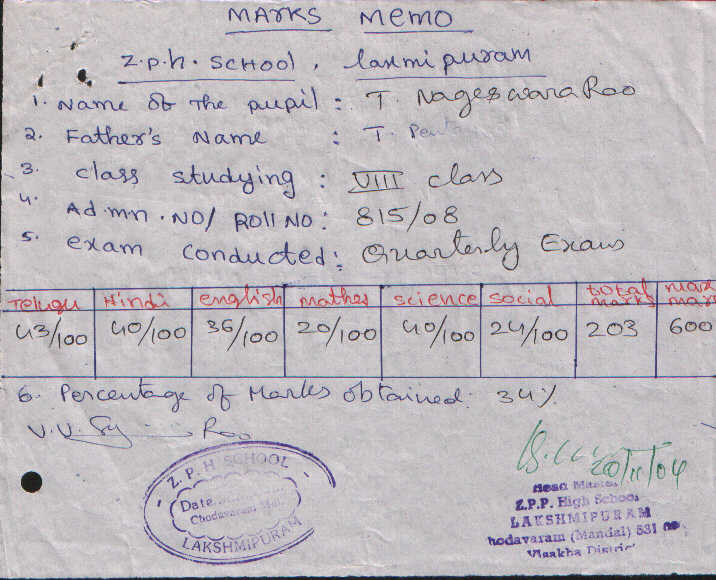 MARKS MEMO
Z.p.h. SCHOOL, laxmipuram
1. Name of The pupil : T. NageswaraRao
2. Father's Name : T.
3. class studying : VIII class
4. Ad.mn.NO/ ROll NO: 815/08
5. exam conducted: Quarterly Exams
Telugu Hindi english mathes science social total marks max mar
43/100 40/100 36/100 20/100 40/100 24/100 203 600
6. Percentage of Marks obtained: 34%
V.V. Rao
Z.P.H SCHOOL
Date
Chodavaram
LAKSHMIPURAM
20/11/04
Head Master
Z.P.P. High School
LAKSHMIPURAM
hodavaram (Mandal) 531
Visakha District